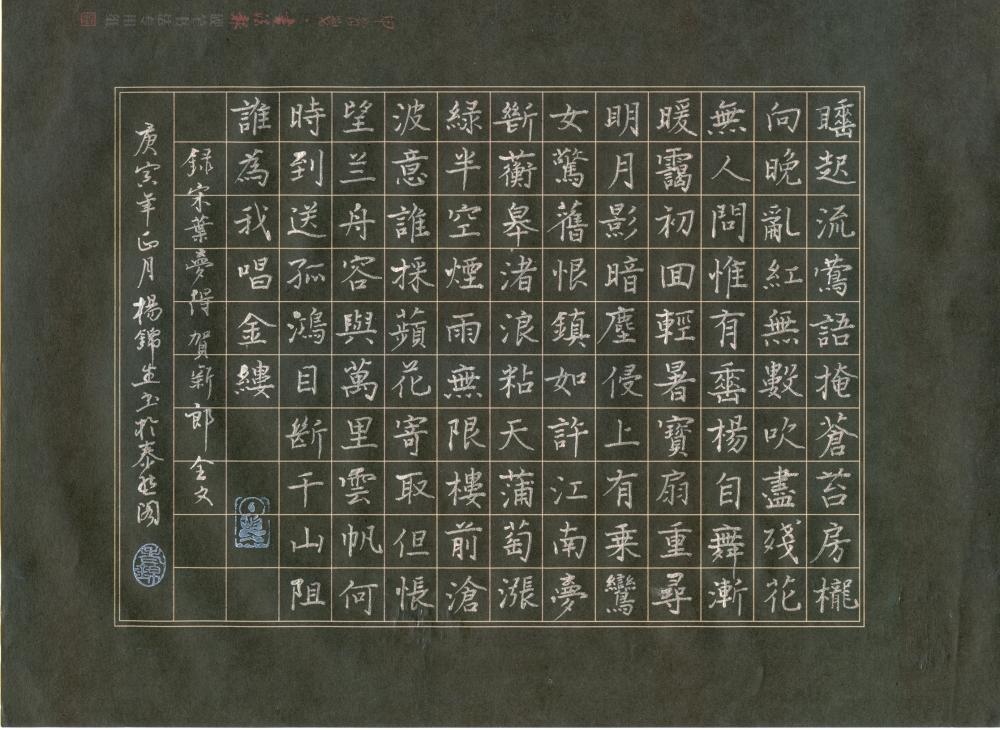 睡起流鶯語掩蒼苔房櫳
向晚亂紅無數吹盡殘花
無人問惟有垂楊自舞漸
暖靄初回輕暑寶扇重尋
明月影暗塵侵上有乘鸞
女驚舊恨鎮如許江南夢
斷蘅皋渚浪粘天蒲萄漲
緑半空煙雨無限樓前滄
波意誰採蘋花寄取但悵
望兰舟容與萬里雲帆何
時到送孤鴻目斷千山阻
誰為我唱金縷
録宋葉夢得 賀新郎 全文
庚寅年正月楊錦生书於泰然阁